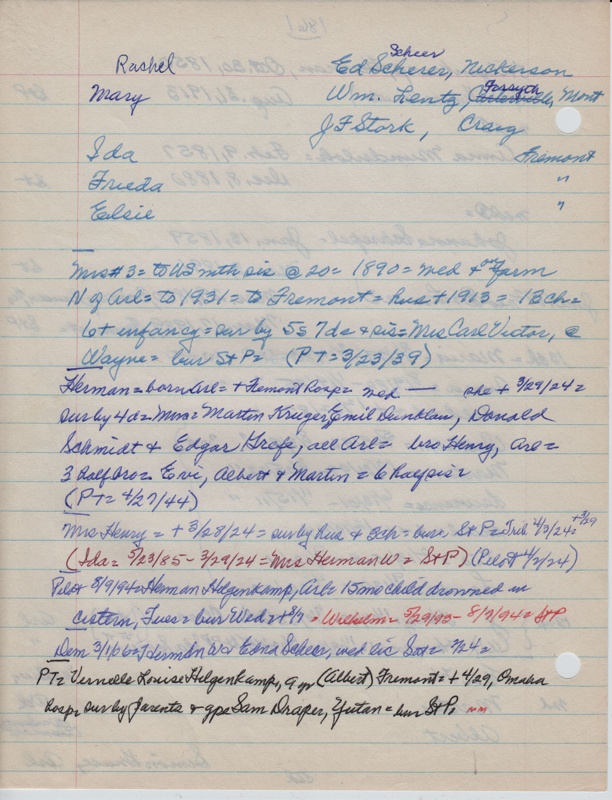 Rachel Ed Scherer, Nickerson
Scheer
Mary Wm. Lentz, Forsyth, Mont
J F Stork, Craig
Ida Fremont
Frieda "
Elsie "
Mrs #3 = to US mth sis @ 20 = 1890 = wed + on farm
N of Arl = to 1931 = to Fremont = Hus + 1913 = 1 Bch =
6 + infancy = sur by 5s 7ds & sis = Mrs Carl Victor, @
Wayne = bur St P = (PT = 3/23/39)
Herman = born Arl = + Fremont Hosp = wed — she + 3/29/24 =
sur by 4d = Mmes = Martin Kruger, Emil Dunklau, Donald
Schmidt & Edgar Grefe, all Arl = bro Henry, Arl =
3 half bro = Ervi, Albert & Martin = 6 half sis =
(PT = 4/27/44)
Mrs Henry = + 3/28/24 = sur by Hus & 8ch = bur St P = Trib 4/3/24 = +3/29
(Ida = 5/23/85 - 3/29/24 = Mrs Herman W = St P) (Pilot 4/3/24)
Pilot 8/9/94 = Herman Helgenkamp, Arl = 15 mo child drowned in
cistern, Tues = bur Wed + 8/7 = Wilhelm = 5/29/93 - 8/7/94 = St P
Dem 3/1/06 = Herman W & Edna Scheer, wed lic Sat = 2/24 =
PT = Vernelle Louise Helgenkamp, 9 yr (Albert) Fremont = + 4/29, Omaha
Hosp = sur by parents & gps Sam Draper, Yutan = bur St P =